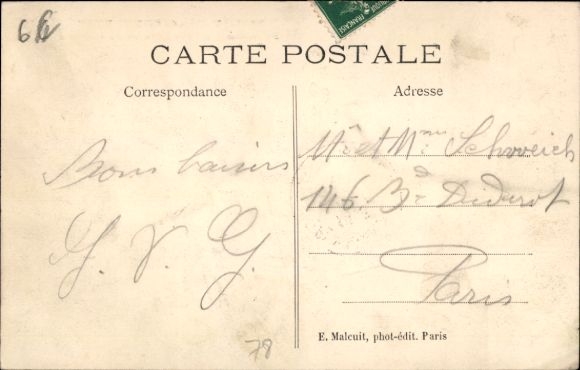 6
CARTE POSTALE
Correspondance
Adresse
Bons baisers
G. V. G.
Mr et Mme Schweich
146 Bd Diderot
Paris
78
E. Malcuit, phot-édit. Paris